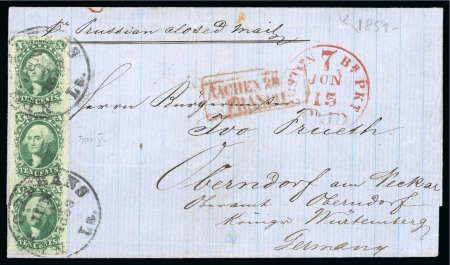 pr Prussian closed mail
1859-
7
BR PKT
JUN
15
PAID
AACHEN 28
FRANCO
Herrn Bürgermeister
Ivo Frueth
Oberndorf am Neckar
Oberamt Oberndorf
Königr Würtemberg
Germany
TEN CENTS
TEN CENTS
TEN CENTS
La.
La.